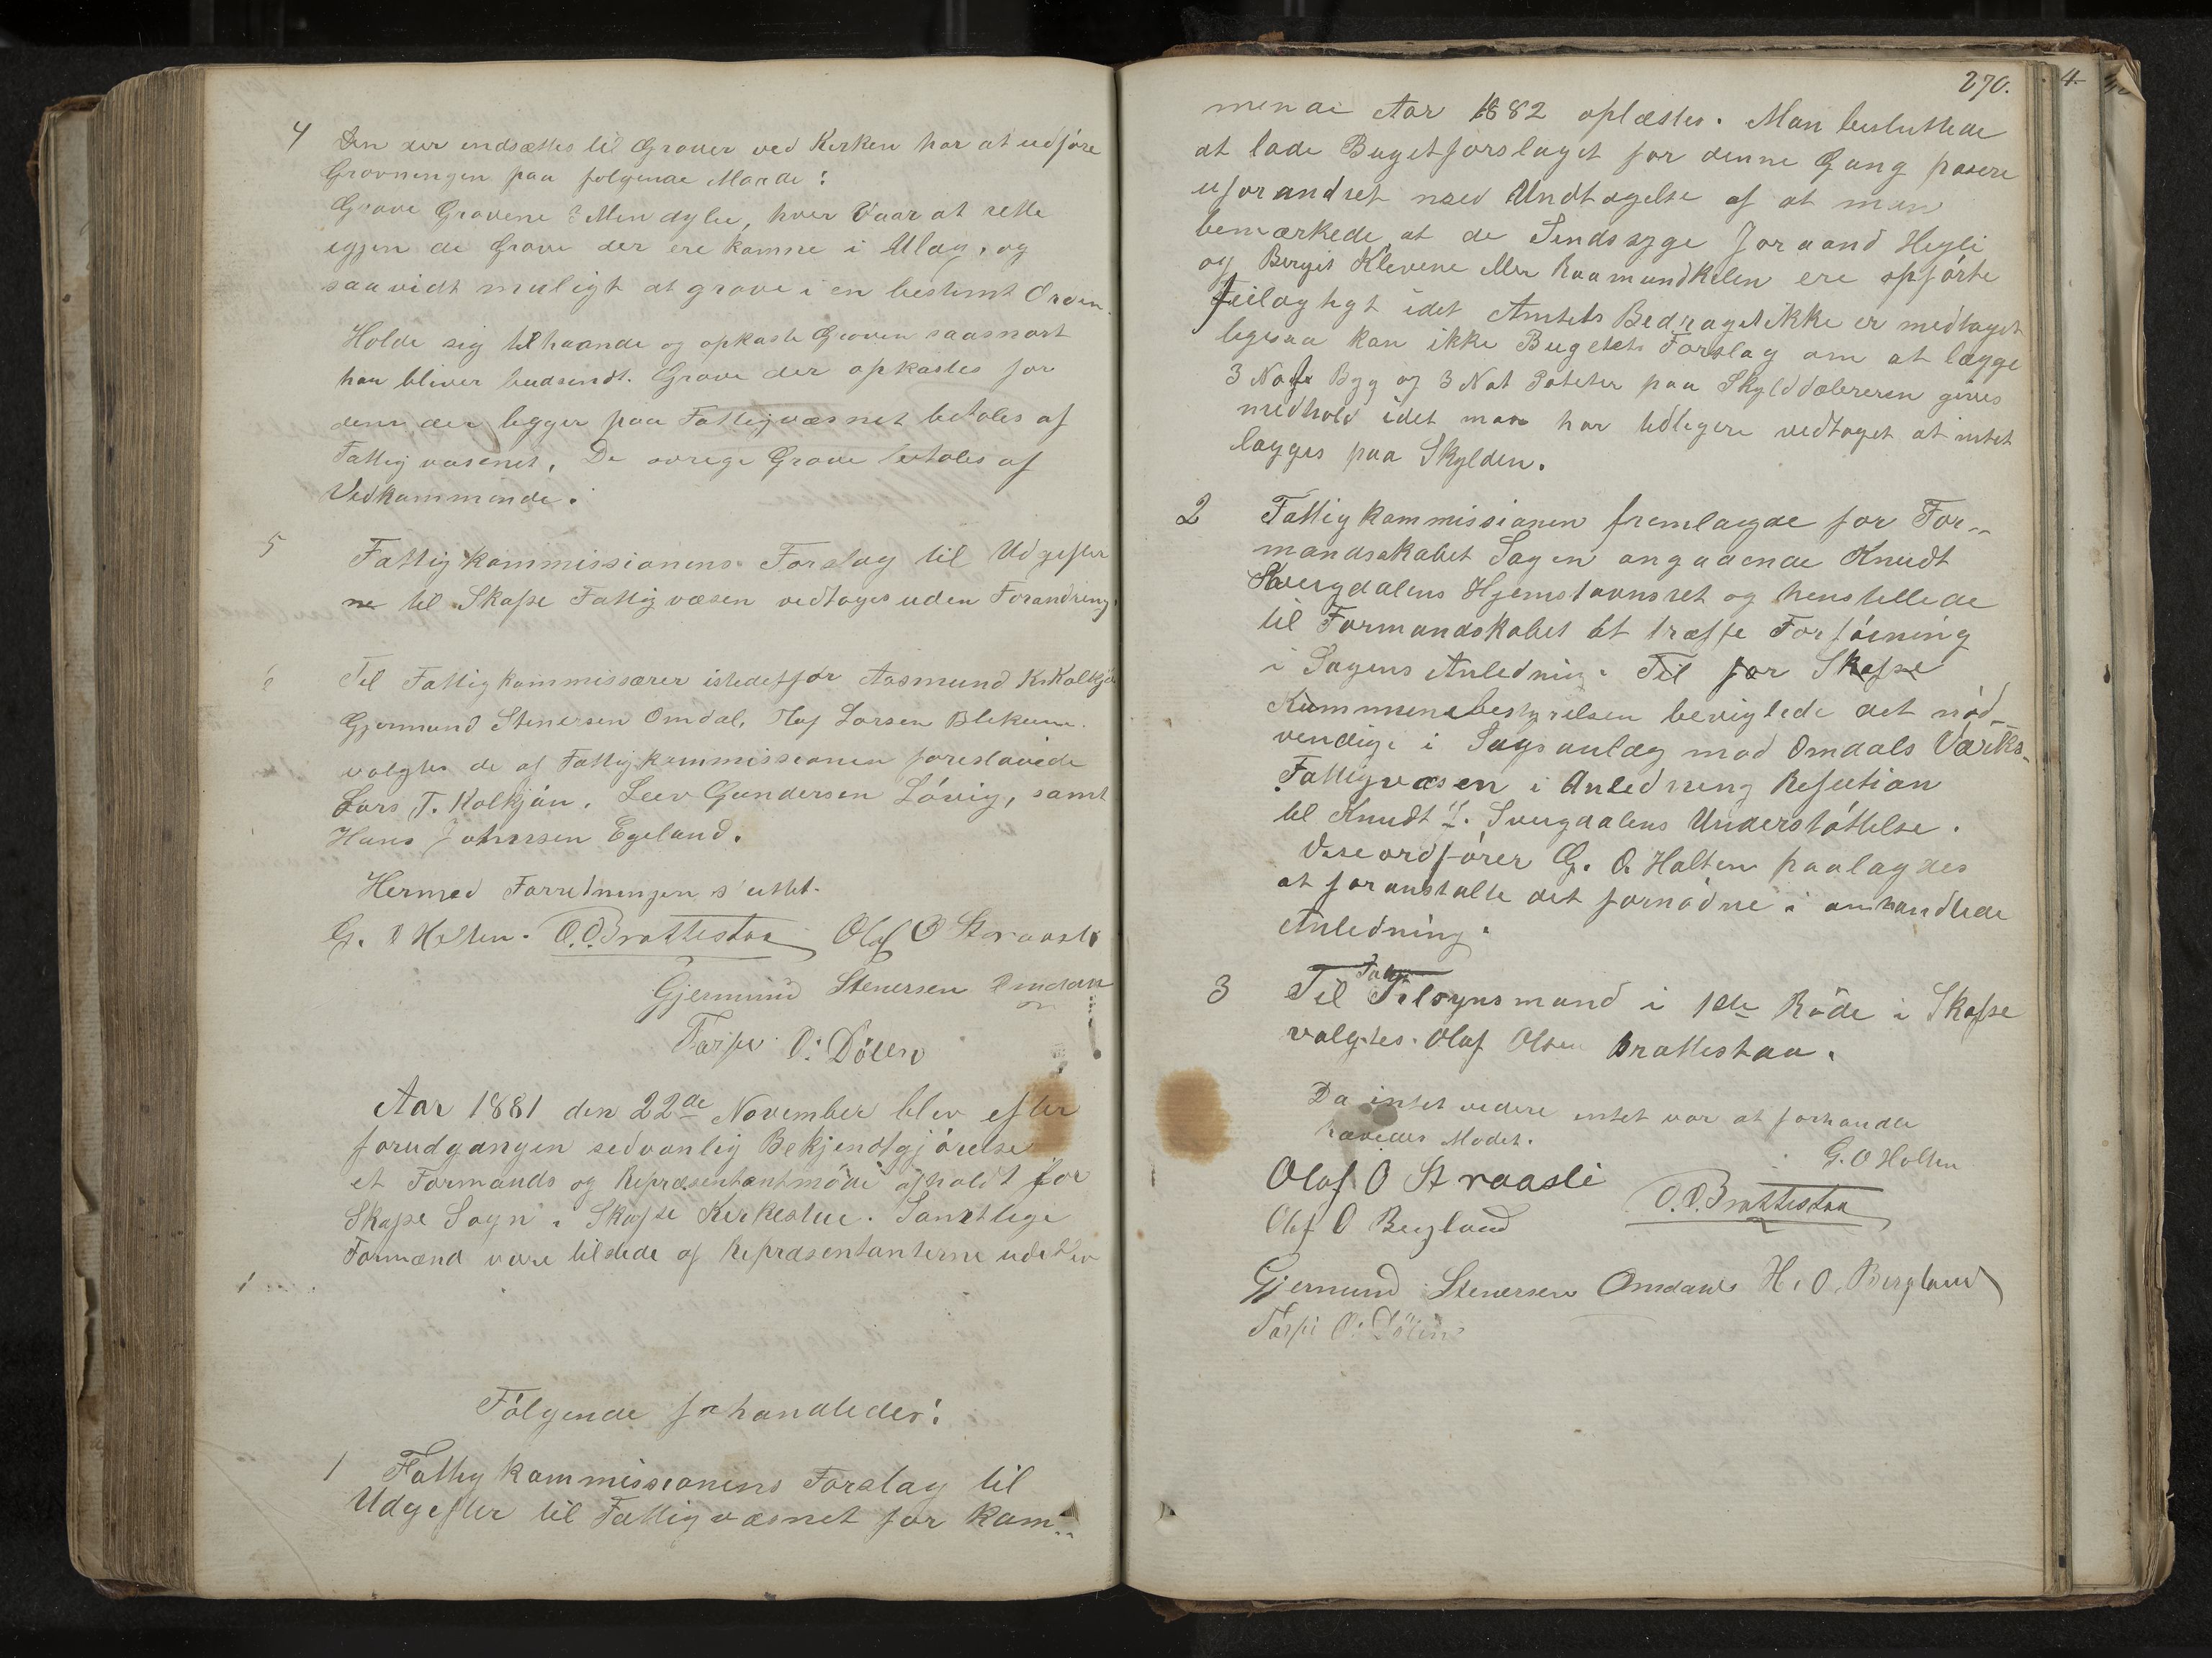 4 Den der indsættes til Graver ved Kirken har at udføre
Gravningen paa følgende Maade:
Grave Gravene 3 Alen dybe, hver Vaar at rette
igjen de Grave der ere komne i Ulag, og
saavidt muligt at grave i en bestemt Orden.
Holde sig tilhaande og opkaste Graven saasnart
han bliver budsendt. Grave der opkastes for
dem der ligger paa Fattigvæsnet betales af
Fattigvæsenet. De øvrige Grave betales af
Vedkommende.
5 Fattigkommissionens Forslag til Udgifter
ne til Skafse Fattigvæsen vedtoges uden Forandring.
6 Til Fattigkommissærer istedetfor Aasmund K. Kolkjøn
Gjermund Stenersen Omdal, Olaf Larsen Blekum
valgtes de af Fattigkommissionen foreslaaede
Lars T. Kolkjøn, Leiv Gundersen Løvig, samt
Hans Johnsen Egeland.
Hermed Forretningen sluttet.
G. O Holten. O.O. Brattestaa Olaf O Straasli
Gjermund Stenersen Omdal
Tarjei O: Dölen
Aar 1881 den 22de November blev efter
forudgangen sedvanlig Bekjendtgjørelse
et Formands og Repræsentantmøde afholdt for
Skafse Sogn i Skafse Kirkestue. Samtlige
Formænd vare tilstede af Repræsentanterne udebler
1
Følgende forhandledes:
1 Fattigkommissionens Forslag til
Udgifter til Fattigvæsnet for kom-
270.
4
mende Aar 1882 oplæstes. Man besluttede
at lade Bugetforslaget for denne Gang pasere
uforandret med Undtagelse af at man
bemærkede at de Sindssyge Joraand Hegli
og Berget Klevene eller Raamundkilen ere opførte
feilagtigt idet Amtets Bedraget ikke er medtaget
ligesaa kan ikke Bugettets Forslag om at lægge
3 Not Byg og 3 Not Poteter paa Skylddaleren gives
medhold idet man har tidligere vedtaget at intet
lægges paa Skylden.
2 Fattigkommissionen fremlagde for For-
mandsskabet Sagen angaaende Knudt
Sveigdalens Hjemstavnsret og henstillede
til Formandskabet at træffe Forføining
i Sagens Anledning. Til for Skafse
Kummunebestyrelsen beviglede det nød-
vendige i Sagsanlæg mod Omdals Værks
Fattigvæsen i Anledning Refution
til Knudt Sveigdalens Understøttelse.
Viseordfører G. O. Holten paalagdes
at foranstalte det fornødne i omhandlede
Anledning.
3 Til Tilsynsmand i 1ste Rode i Skafse
valgtes Olaf Olsen Brattestaa.
Da intet videre intet var at forhandle
hævedes Mødet.
G. O Holten
Olaf O Straasli
O.O. Brattestaa
Olaf O Bergland
Gjermund Stenersen Omdal H. O. Bergland
Tarjei O: Dölen